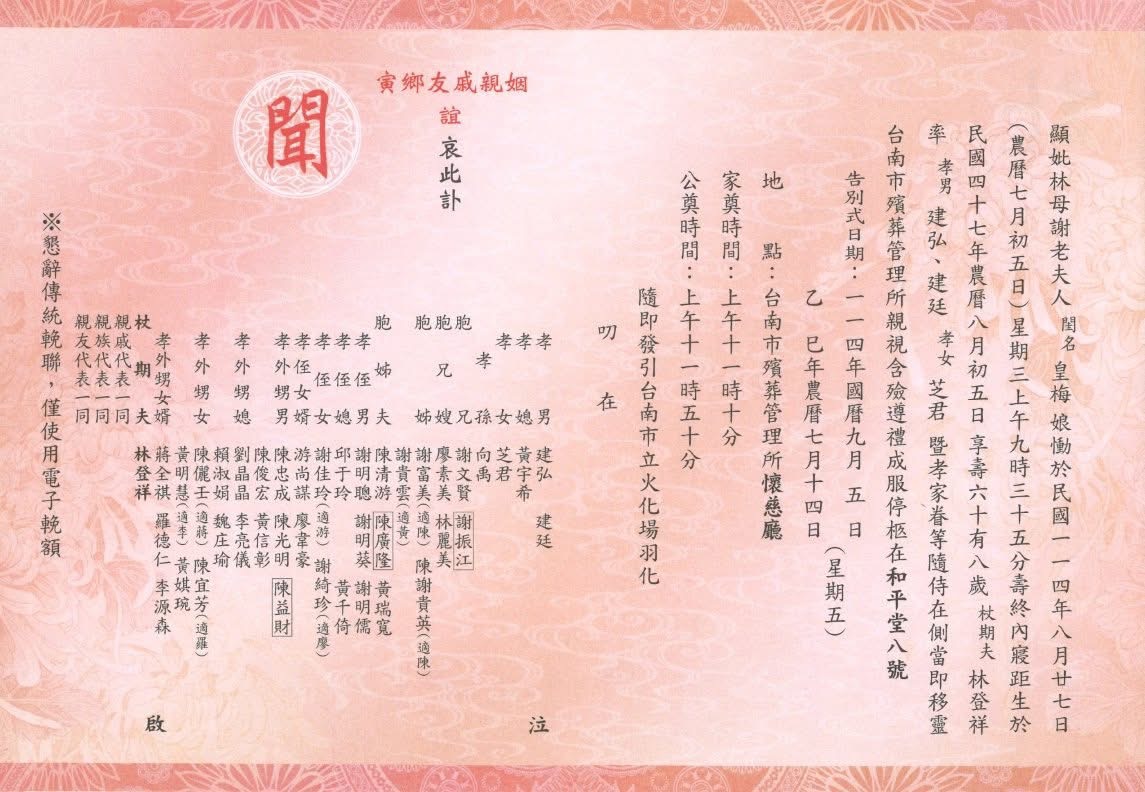 顯妣林母謝老夫人 閨名 皇梅 娘慟於民國一一四年八月廿七日
(農曆七月初五日)星期三上午九時三十五分壽終內寢距生於
民國四十七年農曆八月初五日 享壽六十有八歲 杖期夫 林登祥
率 孝男 建弘、建廷 孝女 芝君 暨孝家眷等隨侍在側當即移靈
台南市殯葬管理所親視含殮遵禮成服停柩在和平堂八號
告別式日期：一一四年國曆九月 五 日
乙 巳年農曆七月十四日
(星期五)
地 點：台南市殯葬管理所懷慈廳
家奠時間：上午十一時十分
公奠時間：上午十一時五十分
隨即發引台南市立火化場羽化
叨 在
姻親戚友鄉寅
誼
哀此訃
聞
孝 男 建弘 建廷
孝 媳 黃宇希
孝 女 芝君
孝 孫 向禹
胞 兄 謝文賢 謝振江
胞 兄 嫂 廖素美 林麗美
胞 姊 謝富美(適陳) 陳謝貴英(適陳)
謝貴雲(適黃)
胞 姊 夫 陳清游 陳廣隆 黃瑞寬
孝 侄 男 謝明聰 謝明葵 謝明儒
孝 侄 媳 邱于玲 黃千倚
孝 侄 女 謝佳玲(適游) 謝綺珍(適廖)
孝侄女婿 游尚謀 廖韋豪
孝外甥男 陳忠成 陳光明 陳益財
陳俊宏 黃信彰
孝外甥媳 劉晶晶 李亮儀
賴淑娟 魏庄瑜
孝外甥女 陳儷壬(適蔣) 陳宜芳(適羅)
黃明慧(適李) 黃娸琬
孝外甥女婿 蔣全祺 羅德仁 李源森
杖 期 夫 林登祥
親戚代表一同
親族代表一同
親友代表一同
泣
啟
※懇辭傳統輓聯，僅使用電子輓額